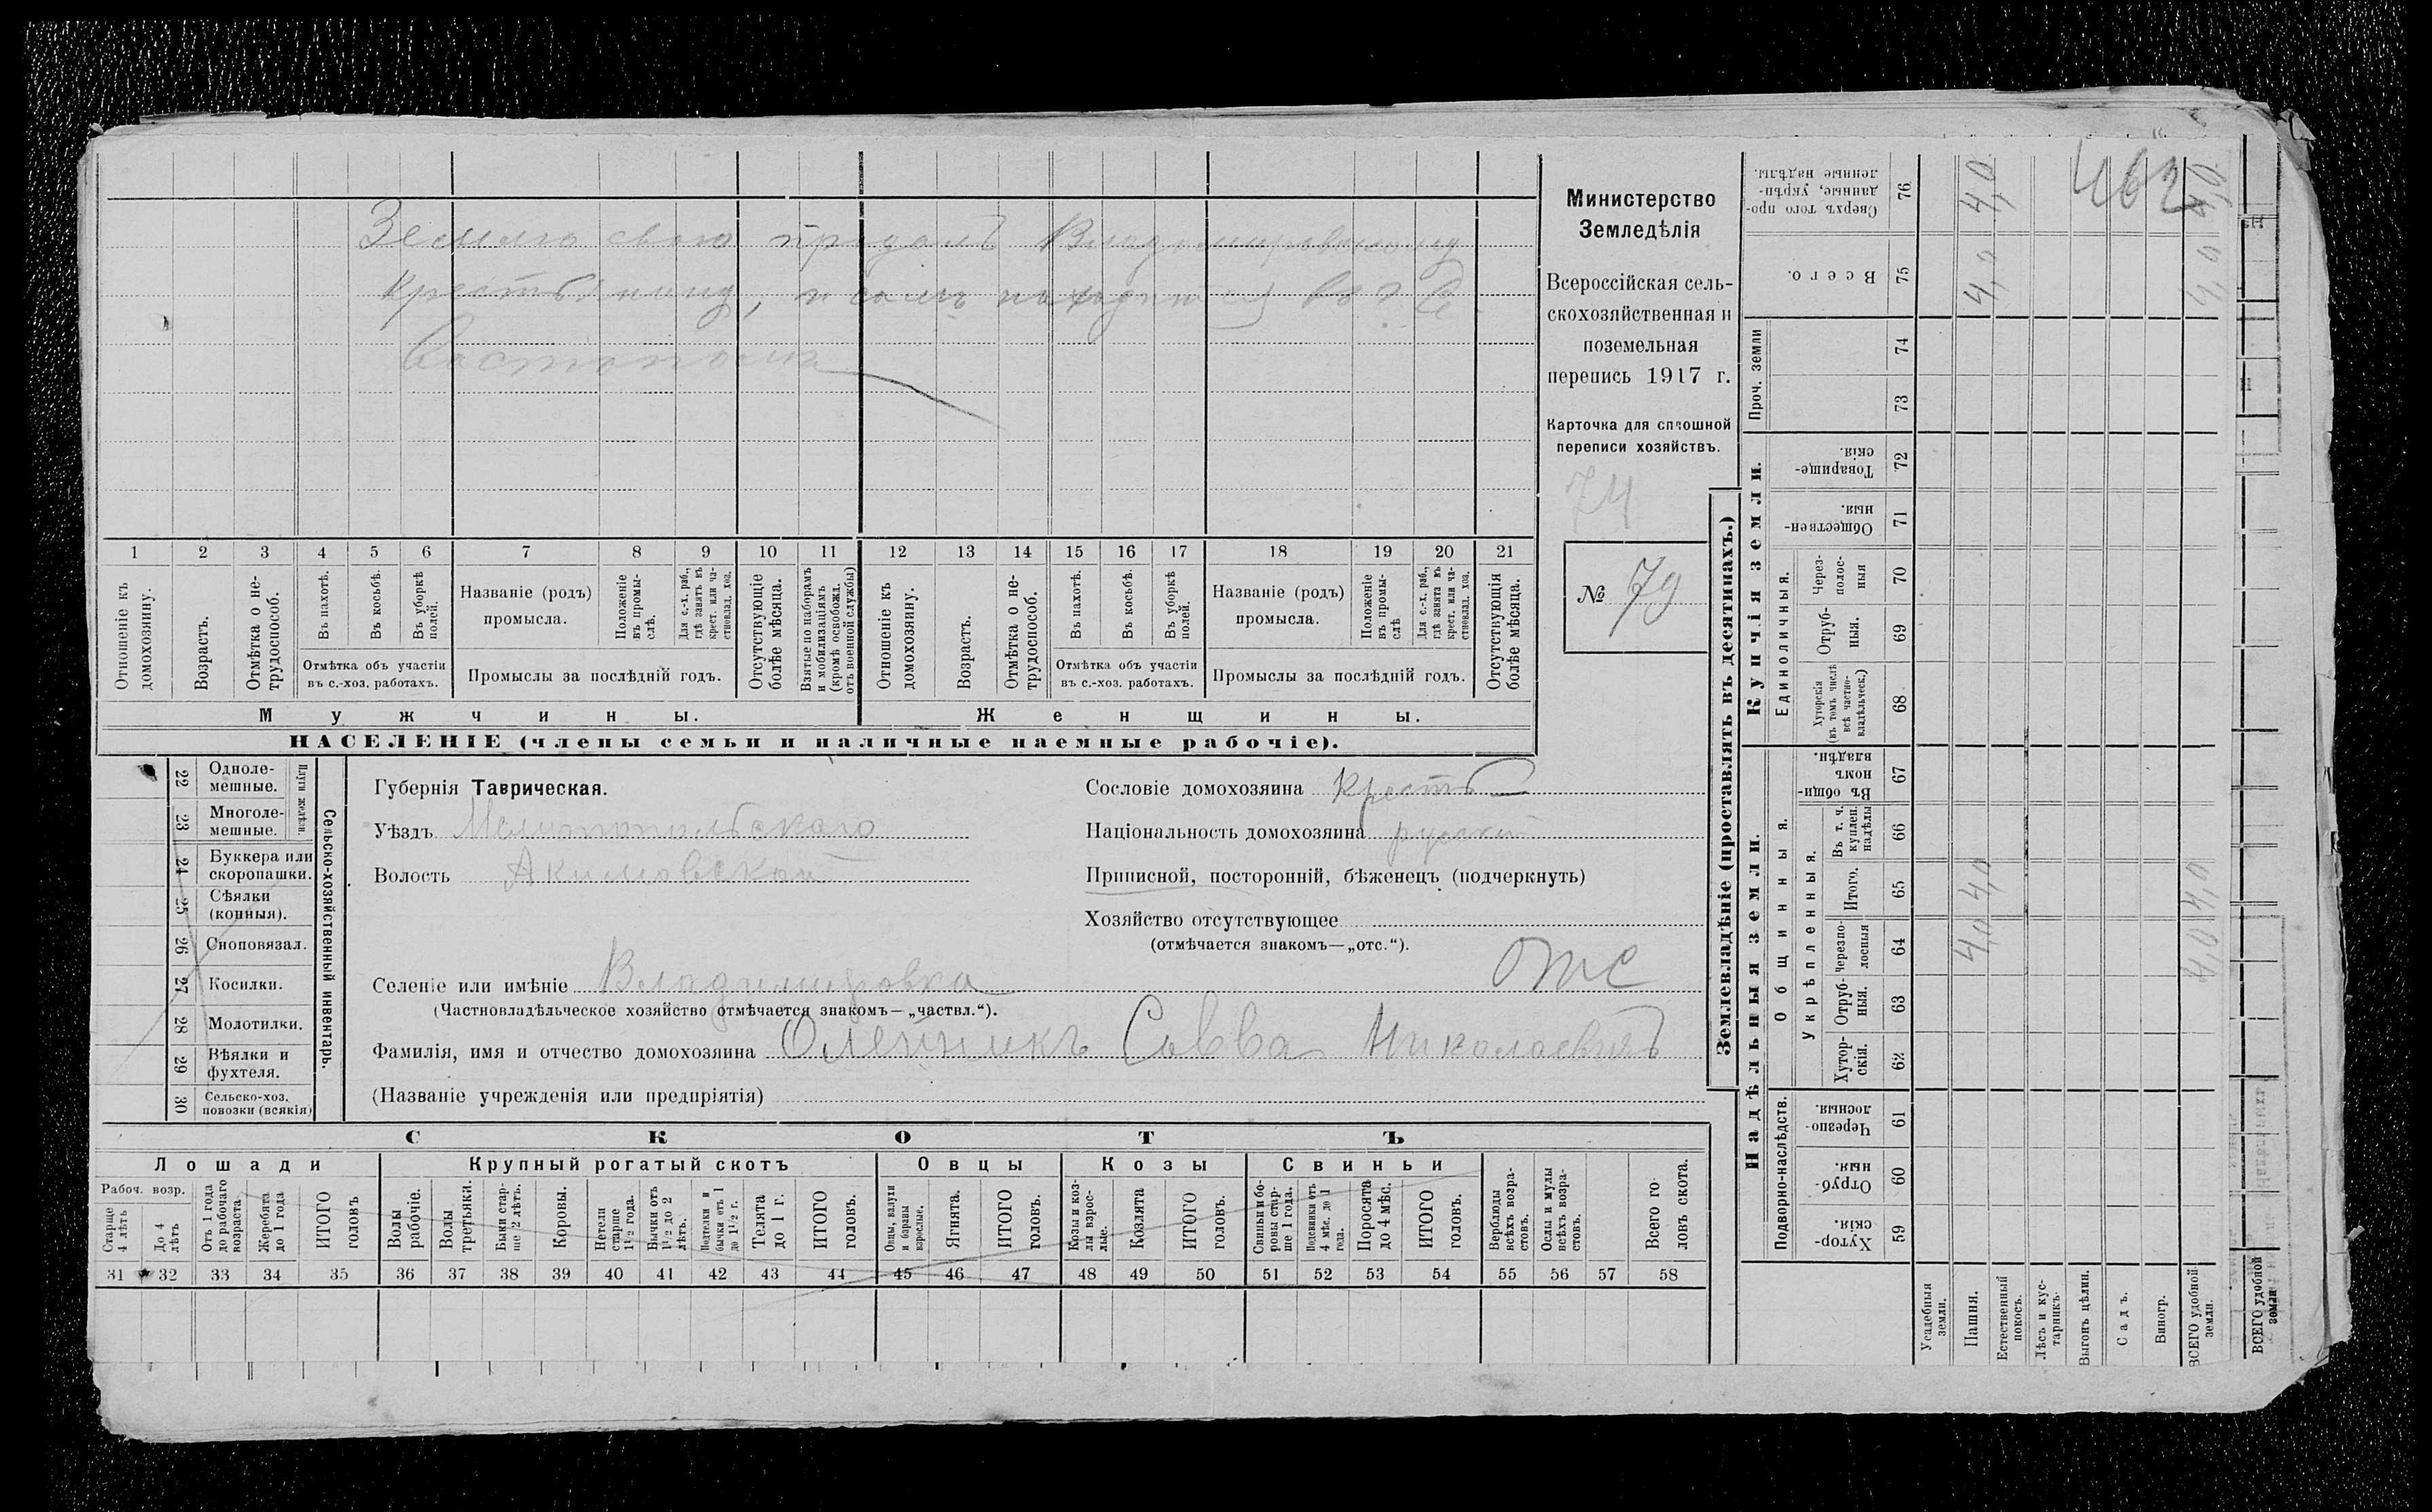 Землю свою продалъ Владимировскому
крестьянину, и самъ находится въ г. Се
вастополе
Министерство
Земледѣлія
Всероссійская сель-
скохозяйственная и
поземельная
перепись 1917 г.
Карточка для сплошной
переписи хозяйствъ.
74
№ 79
1 2 3 4 5 6 7 8 9 10 11 12 13 14 15 16 17 18 19 20 21
Отношеніе къ домохозяину.
Возрастъ.
Отмѣтка о не-
трудоспособ.
Въ пахотѣ.
Въ косьбѣ.
Въ уборкѣ
полей.
Отмѣтка объ участіи
въ с.-хоз. работахъ.
Названіе (родъ)
промысла.
Положеніе
въ промы-
слѣ.
Для с.-х. раб.,
гдѣ занятъ въ
крест. или ча-
стновлад. хоз.
Промыслы за послѣдній годъ.
Отсутствующіе
болѣе мѣсяца.
Взятые по наборамъ
и мобилизаціямъ
(кромѣ освобожд.
отъ военной службы)
Отношеніе къ
домохозяину.
Возрастъ.
Отмѣтка о не-
трудоспособ.
Въ пахотѣ.
Въ косьбѣ.
Въ уборкѣ
полей.
Отмѣтка объ участіи
въ с.-хоз. работахъ.
Названіе (родъ)
промысла.
Положеніе
въ промы-
слѣ
Для с.-х. раб.,
гдѣ занята въ
крест. или ча-
стновлад. хоз.
Промыслы за послѣдній годъ.
Отсутствующія
болѣе мѣсяца.
Мужчины.
Женщины.
НАСЕЛЕНІЕ (члены семьи и наличные наемные рабочіе).
22 Одноле-
мешные.
23 Многоле-
мешные.
Плуги желѣзн.
24 Буккера или
скоропашки.
25 Сѣялки
(конныя).
26 Сноповязал.
27 Косилки.
28 Молотилки.
29 Вѣялки и
фухтеля.
30 Сельско-хоз.
повозки (всякія)
Сельско-хозяйственный инвентарь.
Губернія Таврическая.
Уѣздъ Мелитопольскаго
Волость Акимовской
Селеніе или имѣніе Владимировка
(Частновладѣльческое хозяйство отмѣчается знакомъ—„частвл.“).
Фамилія, имя и отчество домохозяина Олейникъ Савва Николаевичъ
(Названіе учрежденія или предпріятія)
Сословіе домохозяина крестья
Національность домохозяина русскій
Приписной, посторонній, бѣженецъ (подчеркнуть)
Хозяйство отсутствующее
(отмѣчается знакомъ—„отс.“).
отс
СКОТЪ
Лошади
Крупный рогатый скотъ
Овцы
Козы
Свиньи
Рабоч. возр.
Старше
4 лѣтъ
До 4
лѣтъ
Отъ 1 года
до рабочаго
возраста.
Жеребята
до 1 года
ИТОГО
головъ
Волы
рабочіе.
Волы
третьяки.
Быки стар-
ше 2 лѣтъ.
Коровы.
Нетели
старше
1½ года.
Бычки отъ
1½ до 2
лѣтъ.
Подтелки и
бычки отъ 1
до 1½ г.
Телята
до 1 г.
ИТОГО
головъ.
Овцы, валухи
и бараны
взрослые.
Ягнята.
ИТОГО
головъ.
Козы и коз-
лы взрос-
лые.
Козлята
ИТОГО
головъ.
Свиньи и бо-
ровы стар-
ше 1 года.
Подсвинки отъ
4 мѣс. до 1
года.
Поросята
до 4 мѣс.
ИТОГО
головъ.
Верблюды
всѣхъ возра-
стовъ.
Ослы и мулы
всѣхъ возра-
стовъ.
Всего го-
ловъ скота.
31 32 33 34 35 36 37 38 39 40 41 42 43 44 45 46 47 48 49 50 51 52 53 54 55 56 57 58
Землевладѣніе (проставлять въ десятинахъ.)
Надѣльныя земли.
Купчія земли.
Проч. земли
Подворно-наслѣдств.
Общинныя.
Укрѣпленныя.
Единоличныя.
Хутор-
скія. 59
Отруб-
ныя. 60
Черезпо-
лосныя. 61
Хутор-
скія. 62
Отруб-
ныя. 63
Черезпо-
лосныя 64
Итого. 65
Въ т. ч.
куплен.
надѣлы 66
Въ общи-
номъ
владѣн. 67
Хуторскія
(въ томъ числѣ
всѣ частно-
владѣльческ.) 68
Отруб-
ныя. 69
Через-
полос-
ныя 70
Обществен-
ныя. 71
Товарище-
скія. 72
73
74
Всего. 75
Сверхъ того про-
данные, укрѣп-
ленные надѣлы. 76
Усадебныя
земли.
Пашня. 4,0 4,0 4,0 4,0
Естественный
покосъ.
Лѣсъ и кус-
тарникъ.
Выгонъ цѣлин.
Садъ.
Виногр.
ВСЕГО удобной
земли. 4,0 4,0 4,0 4,0
462
ВСЕГО удобной
земли